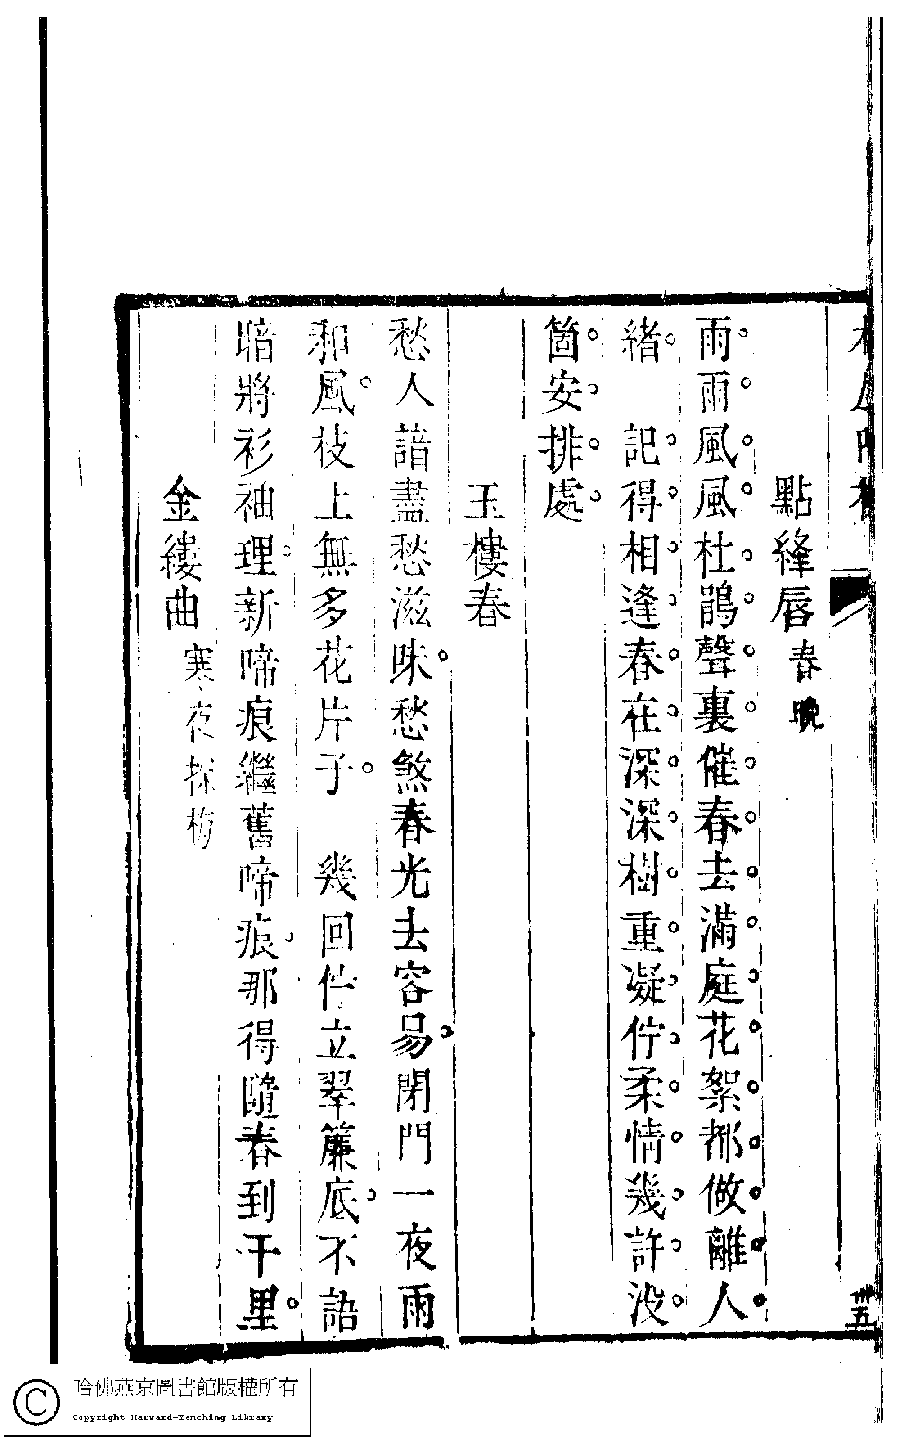 點絳唇春晚
雨雨風風杜鵑聲裏催春去滿庭花絮都做離人
緒　記得相逢春在深深樹重凝佇柔情幾許沒
箇安排處
玉樓春
愁人諳盡愁滋味愁煞春光去容易閉門一夜雨
和風枝上無多花片子　幾回佇立翠簾底不語
暗將衫袖理新啼痕繼舊啼痕那得隨春到千里
金縷曲寒夜探梅
卅五
哈佛燕京圖書館版權所有
Copyright Harvard-Yenching Library